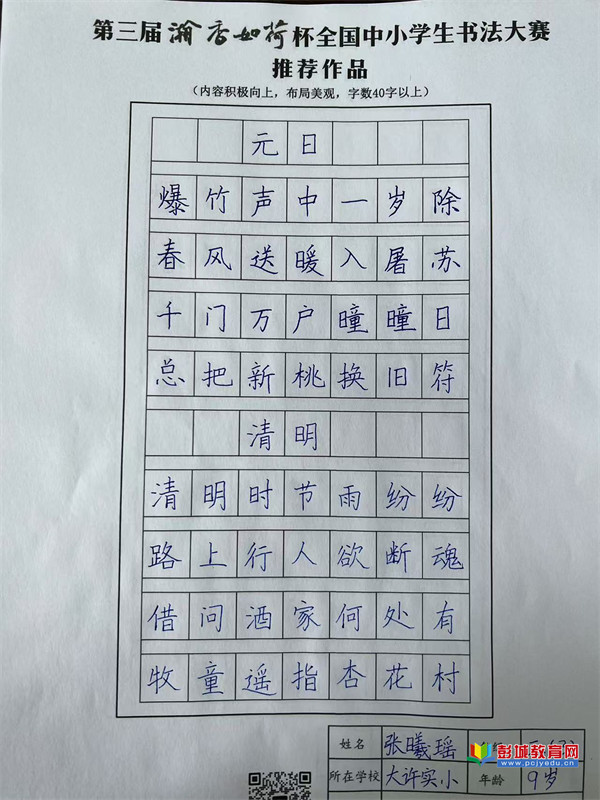 第三届瀚香如荷杯全国中小学生书法大赛
推荐作品
（内容积极向上，布局美观，字数40字以上）
元日
爆竹声中一岁除
春风送暖入屠苏
千门万户曈曈日
总把新桃换旧符
清明
清明时节雨纷纷
路上行人欲断魂
借问酒家何处有
牧童遥指杏花村
姓名 张曦瑶
所在学校 大许实小 年龄 9岁
彭城教育网
www.pcjyedu.cn